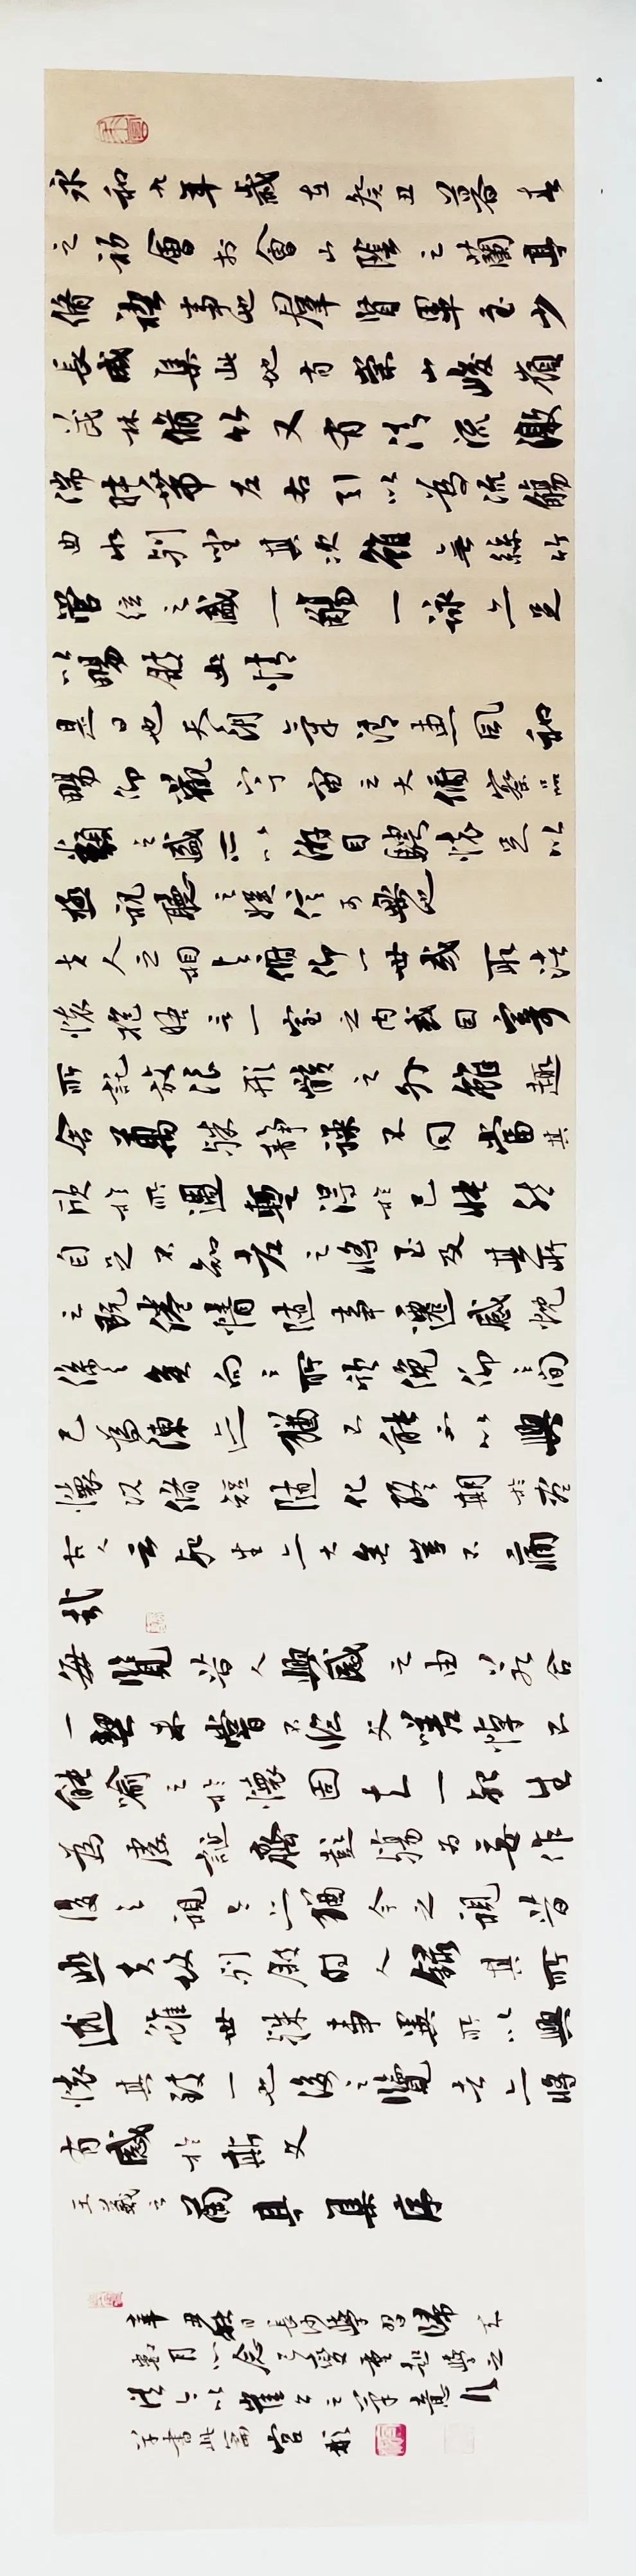 永和九年歲在癸丑暮春
之初會於會山陰之蘭亭
脩禊事也羣賢畢至少
長咸集此地有崇山峻嶺
茂林脩竹又有清流激
湍映帶左右引以為流觴
曲水列坐其次雖無絲竹
管弦之盛一觴一詠亦足
以暢敘幽情
是日也天朗氣清惠風和
暢仰觀宇宙之大俯察品
類之盛所以遊目騁懷足以
極視聽之娛信可樂也
夫人之相與俯仰一世或取諸
懷抱晤言一室之內或因寄
所託放浪形骸之外雖趣
舍萬殊靜躁不同當其
欣於所遇暫得於己怏然
自足不知老之將至及其所
之既倦情隨事遷感慨
係之矣向之所欣俛仰之間
已為陳迹猶不能不以興
懷況脩短隨化終期於盡
古人云死生亦大矣豈不痛
哉
每覽昔人興感之由若合
一契未嘗不臨文嗟悼不
能喻之於懷固知一死生
為虛誕齊彭殤為妄作
後之視今亦猶今之視昔
悲夫故列敘時人錄其所
述雖世殊事異所以興
懷其致一也後之覽者亦將
有感於斯文
王羲之蘭亭集序
辛丑日長沙學習歸來
數月心念變重起學之
法今以崔公之筆意
書此篇宮彬